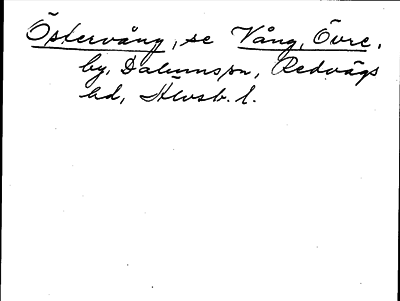 Östervång, se Vång, Övre,
by, Dalums sn, Redvägs
hd, Älvsb. l.